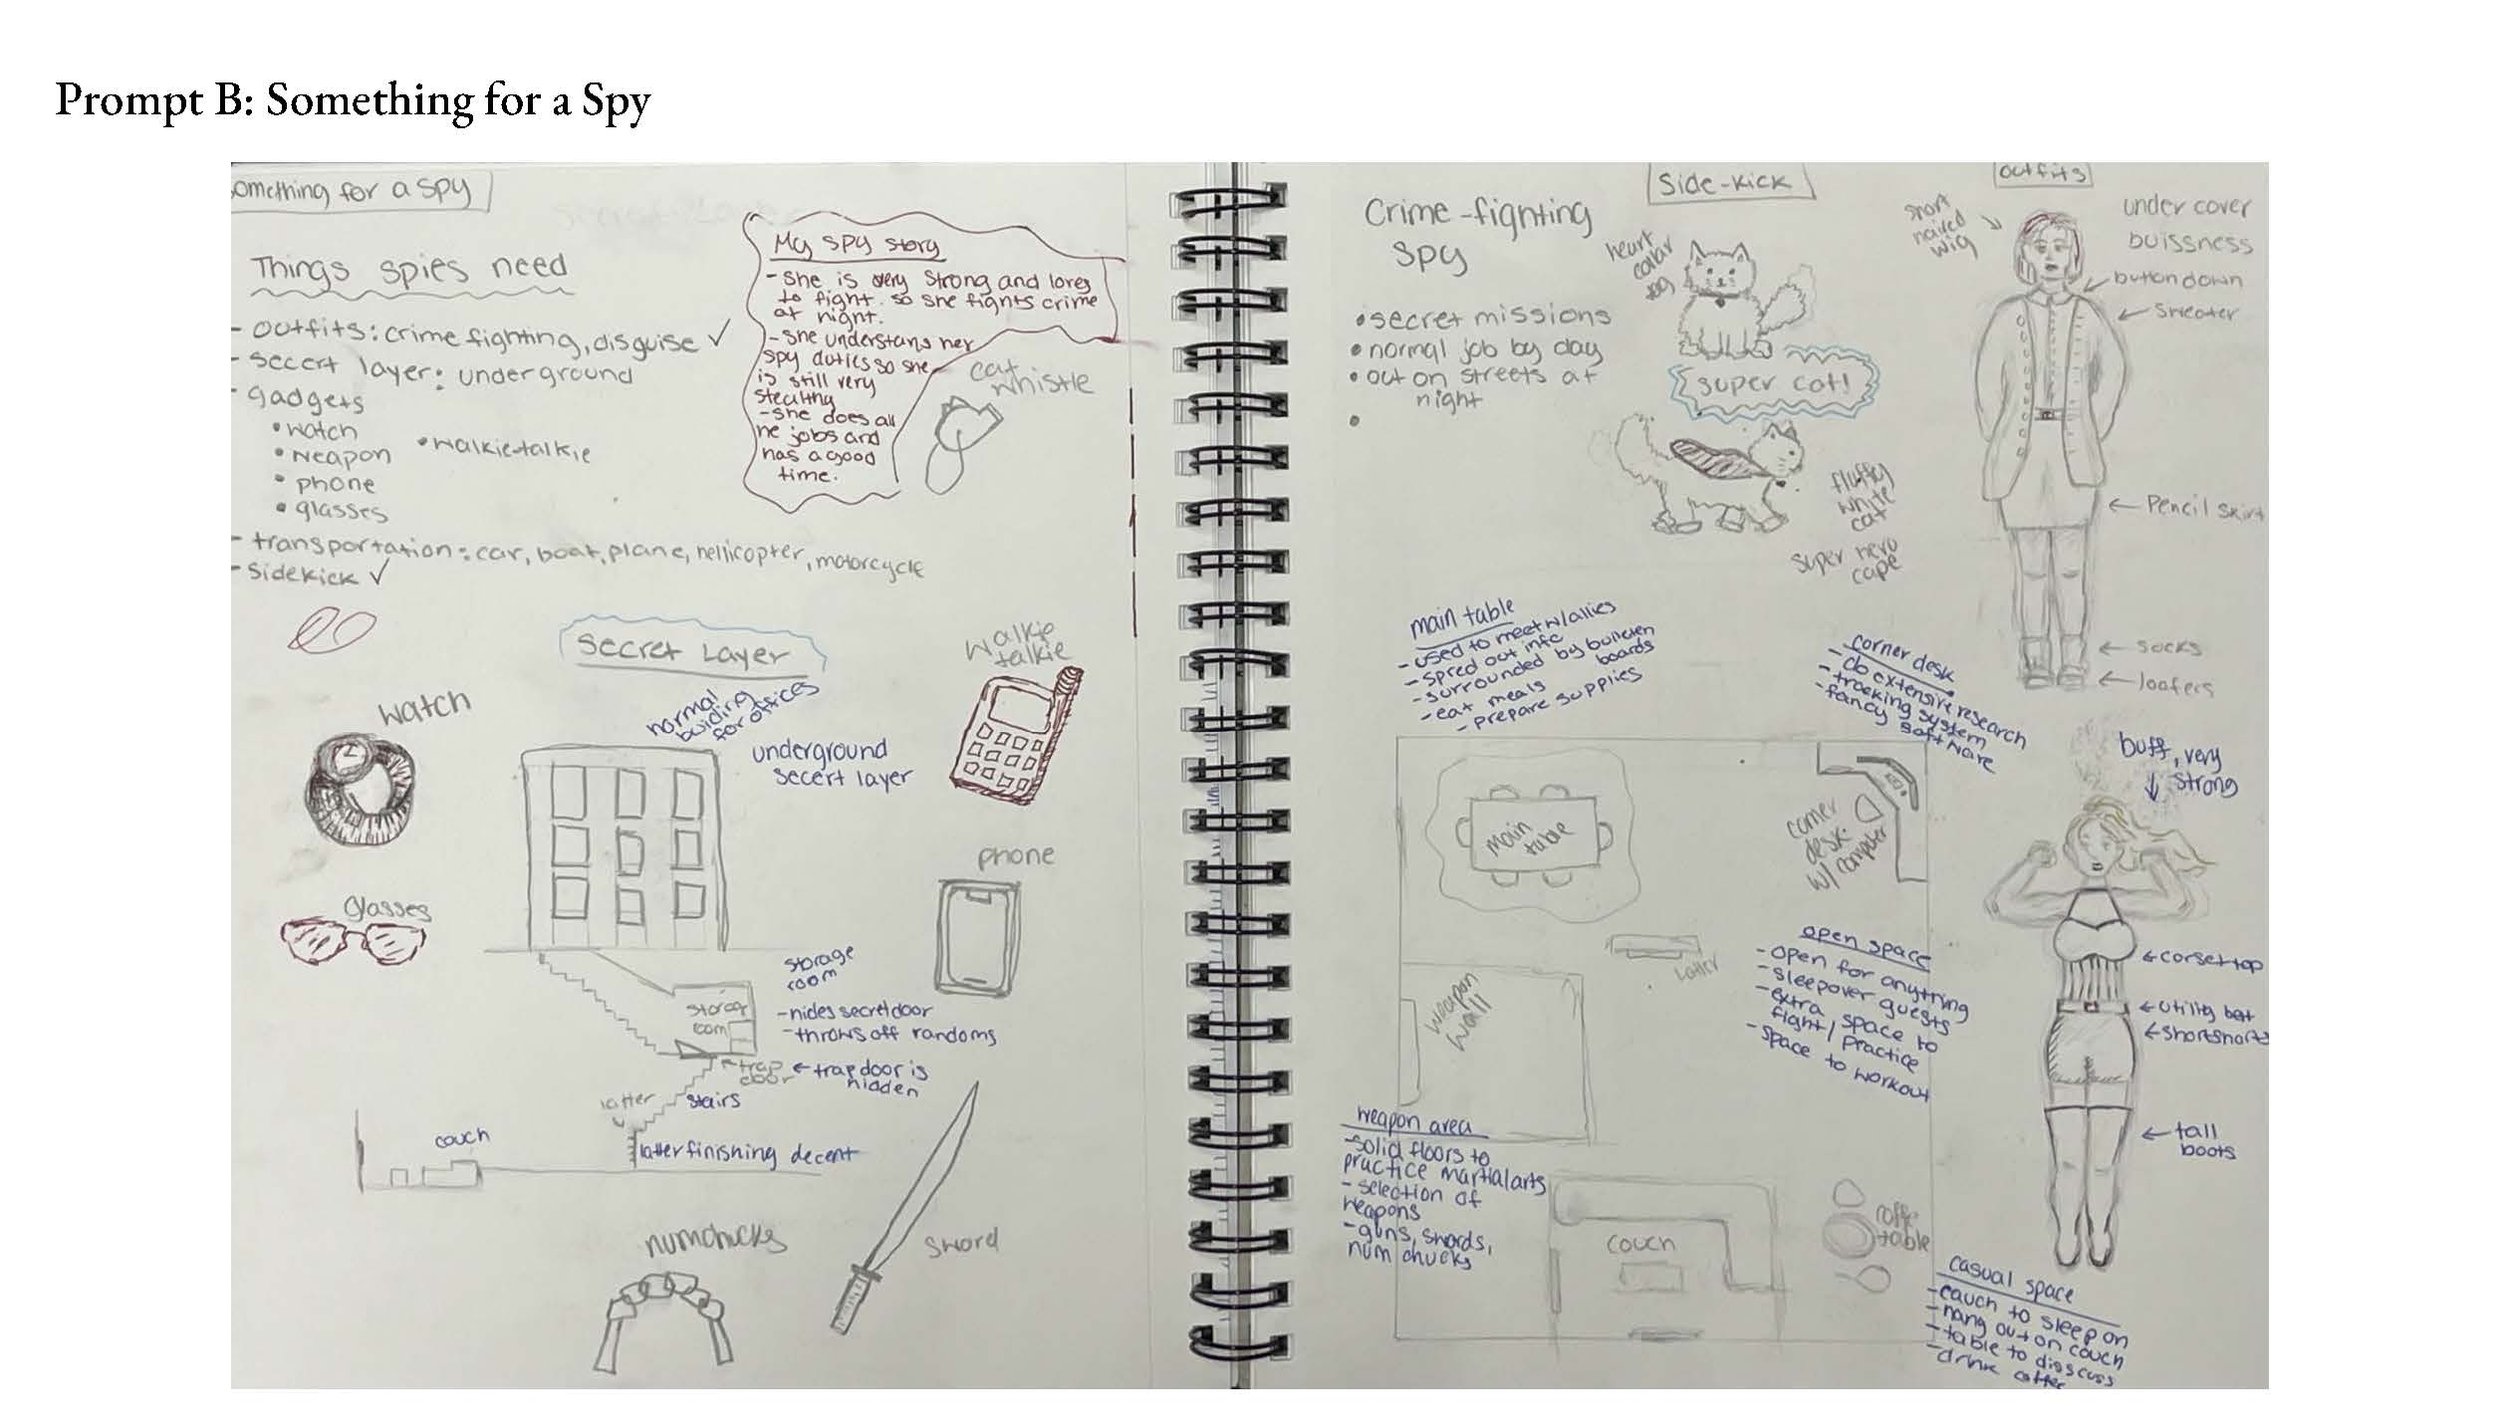 Prompt B: Something for a Spy
omething for a spy
Things spies need
- outfits: crime fighting, disguise ✓
- secert layer: underground
- gadgets
• watch
• weapon
• walkie-talkie
• phone
• glasses
- transportation: car, boat, plane, hellicopter, motorcycle
- sidekick ✓
My spy story
- she is very strong and loves
to fight. so she fights crime
at night.
- she understans her
spy duties so she
is still very
stealthy
- she does all
he jobs and
has a good
time.
cat
whistle
Secret Layer
walkie
talkie
watch
normal
buiding
for offices
underground
secert layer
phone
glasses
storage
room
- hides secret door
- throws off randoms
trap
door
← trap door is
hidden
latter
stairs
couch
latter finishing decent
numchucks
sword
Crime-fighting
Spy
• secret missions
• normal job by day
• out on streets at
night
•
Side-kick
heart
collar
tag
super cat!
fluffy
white
cat
super hero
cape
outfits
short
haired
wig
under cover
buissness
button down
← sweater
← Pencil skirt
← socks
← loafers
main table
- used to meet w/allies
- spred out info
- surrounded by bulleten
boards
- eat meals
- prepare supplies
corner desk
- do extensive research
- tracking system
- fancy software
main
table
corner
desk
w/ computer
buff, very
strong
← corset top
← utility belt
← short shorts
← tall
boots
latter
open space
- open for anything
- sleepover guests
- extra space to
fight / practice
- space to workout
weapon
wall
weapon area
- solid floors to
practice martial arts
- selection of
weapons
- guns, swords,
num chucks
couch
coffe
table
casual space
- cauch to sleep on
- hang out on couch
- table to disscuss
- drink coffee